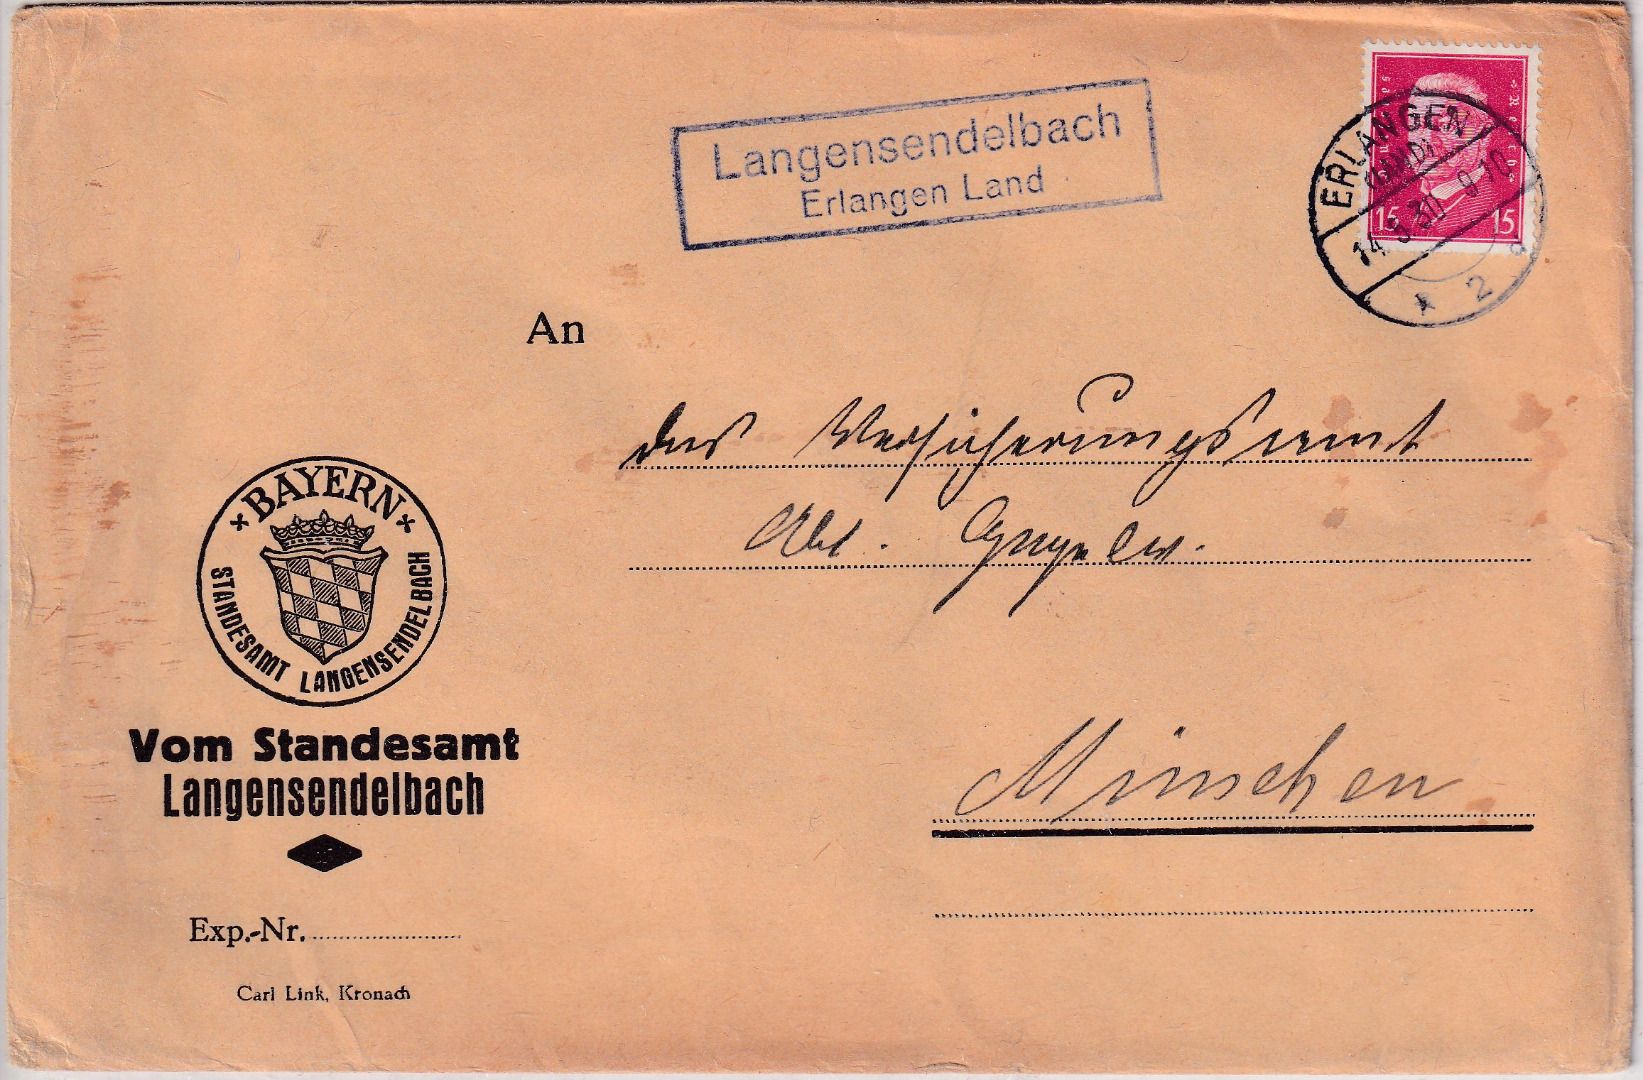 Langensendelbach
Erlangen Land
Deutsches Reich
15 15
ERLANGEN
(LAND)
14.5.30 9-10
* 2 d
An
das Versicherungsamt
Abt.
München
* BAYERN *
STANDESAMT LANGENSENDELBACH
Vom Standesamt
Langensendelbach
Exp.-Nr.
Carl Link, Kronach